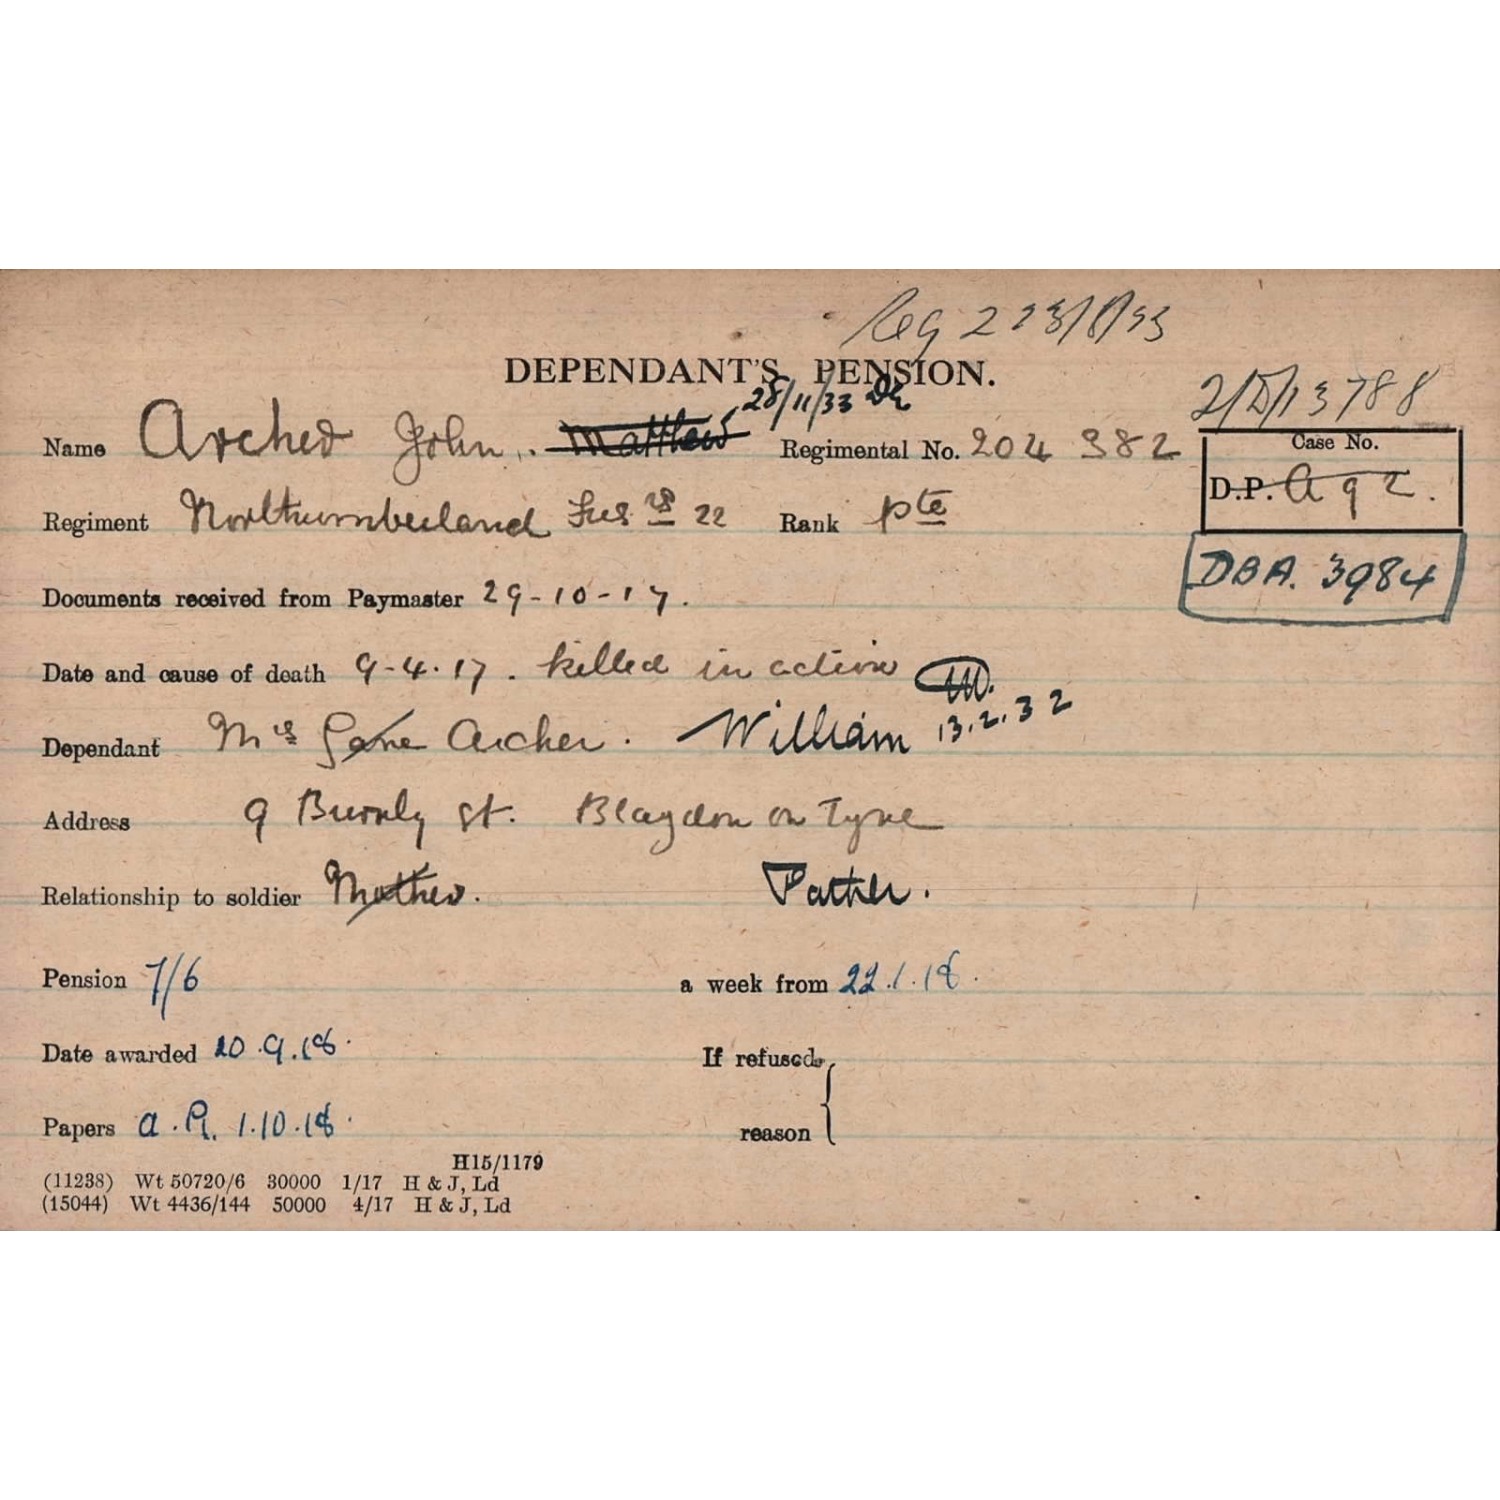 Reg 2 23/8/33
DEPENDANT'S PENSION.
28/11/33
2/D/13788
Name Archer John. Matthew Regimental No. 204 382
Case No.
D.P. A 92.
Regiment Northumberland Fus rs 22 Rank Pte
DBA. 3984
Documents received from Paymaster 29-10-17.
Date and cause of death 9-4-17. killed in action
13.2.32
Dependant Mrs Jane Archer. William
Address 9 Burnly St. Blaydon on Tyne
Relationship to soldier Mother. Father.
Pension 7/6 a week from 22.1.18.
Date awarded 20.9.18. If refused,
Papers a.R. 1.10.18. reason
H15/1179
(11238) Wt 50720/6 30000 1/17 H & J, Ld
(15044) Wt 4436/144 50000 4/17 H & J, Ld